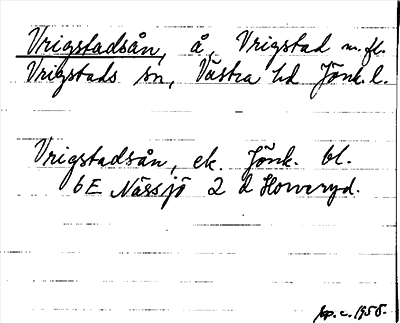 Vrigstadsån, å, Vrigstad m.fl.
Vrigstads sn, Västra hd Jönk. l.
Vrigstadsån, ek. Jönk. bl.
6E Nässjö 2 d Hovaryd.
c. 1955.